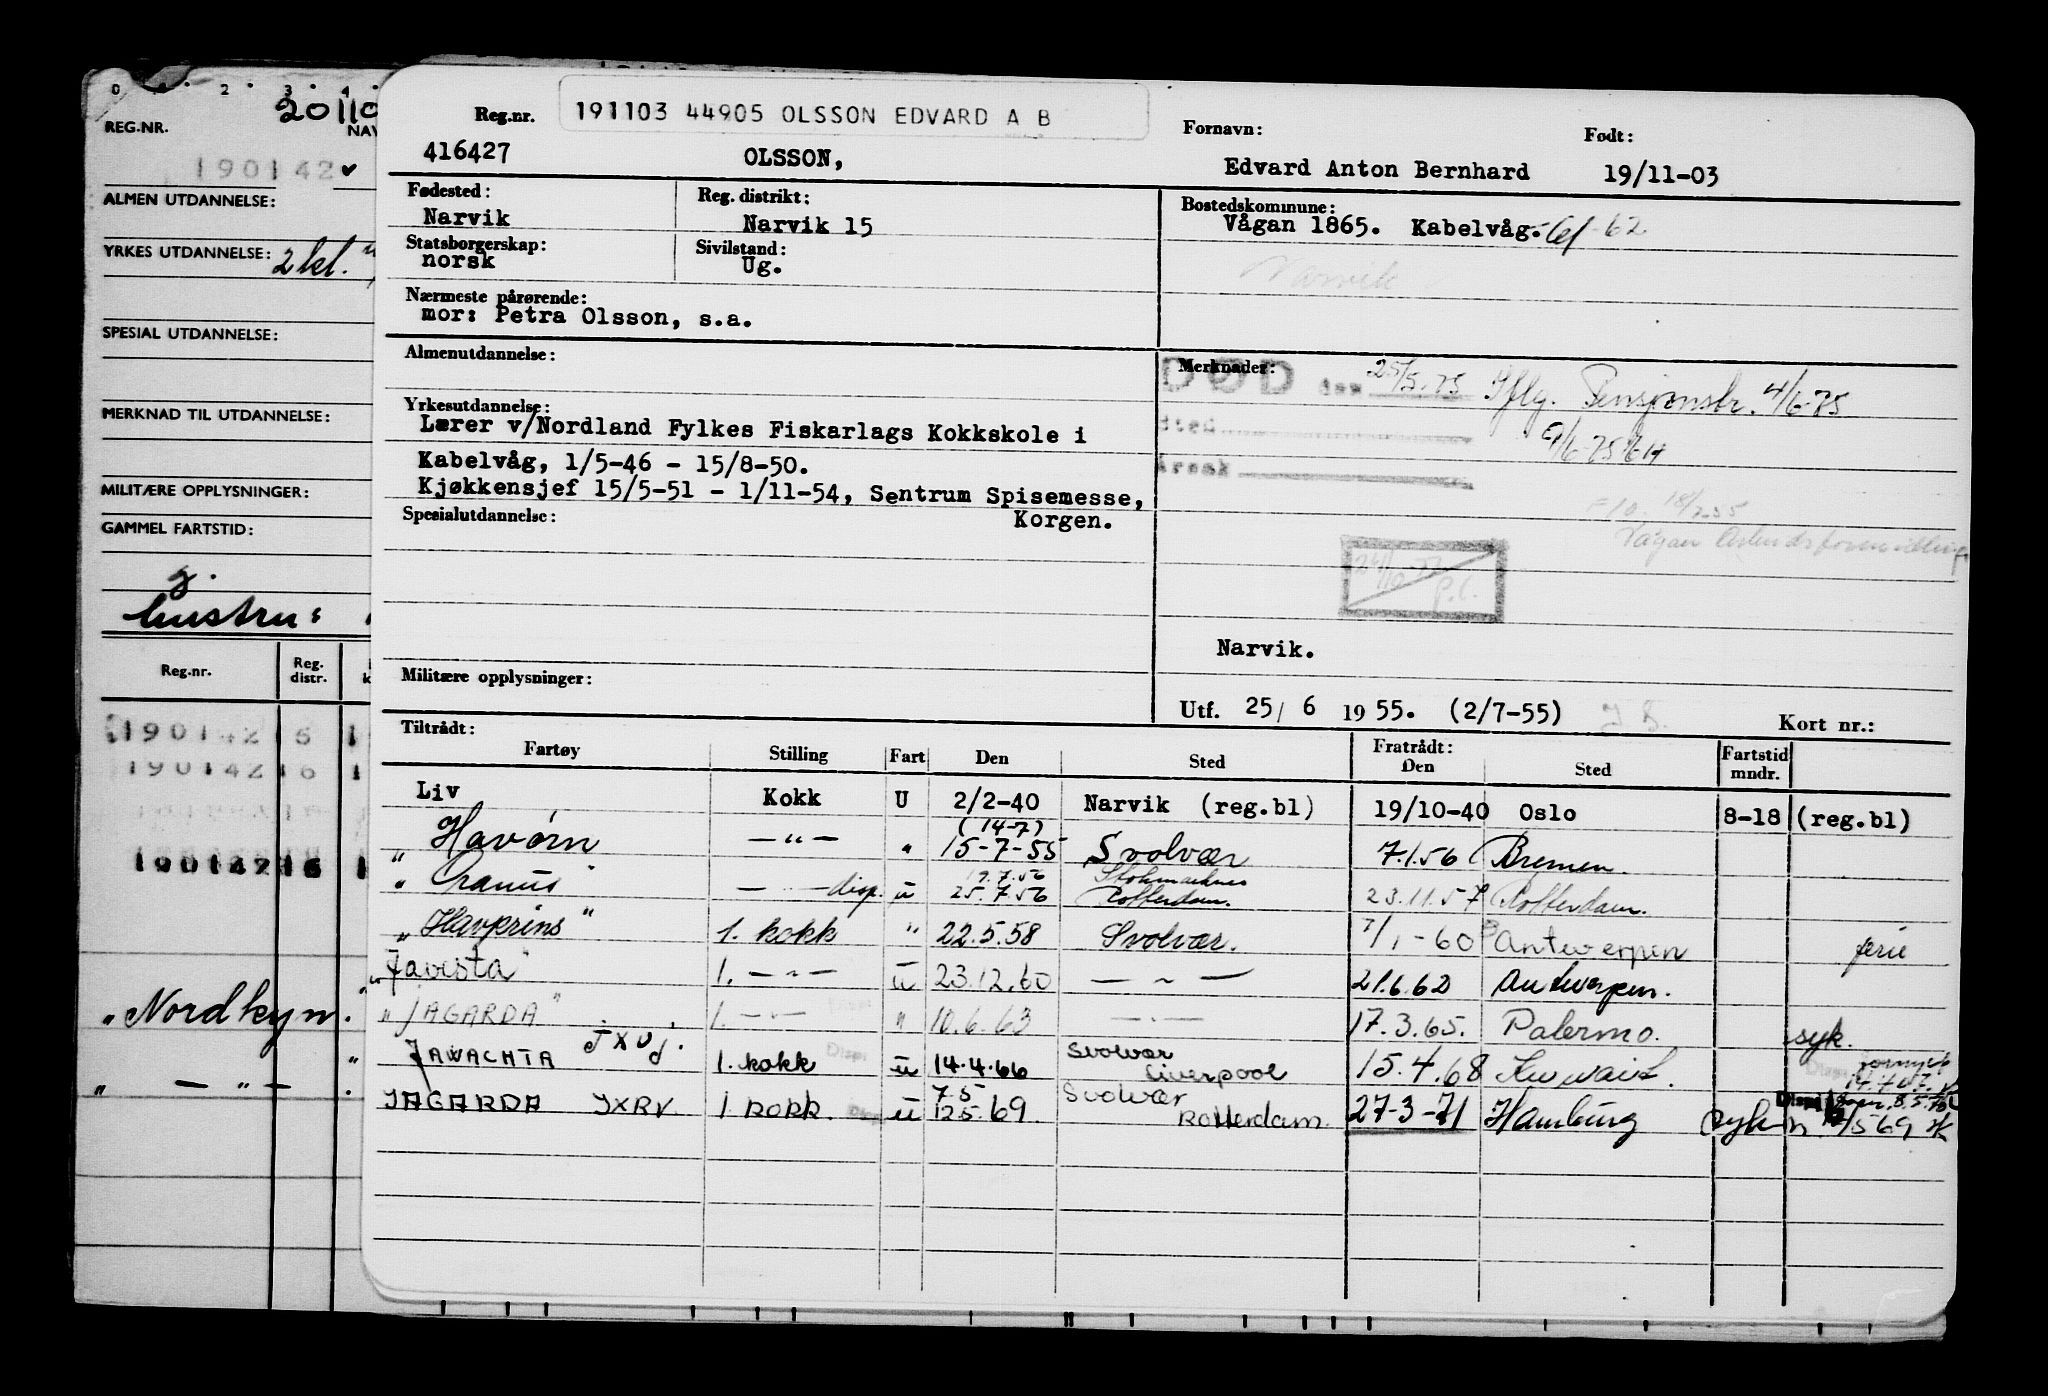 0 1 2 3 4
20110
REG.NR.
190142
ALMEN UTDANNELSE:
YRKES UTDANNELSE: 2 kl.
SPESIAL UTDANNELSE:
MERKNAD TIL UTDANNELSE:
MILITÆRE OPPLYSNINGER:
GAMMEL FARTSTID:
Reg.nr. Reg. distr.
190142 16 1
190142 16 1
190142 16 1
"Nordkyn"
" — " — "
Reg.nr. 191103 44905 OLSSON EDVARD A B Fornavn: Født:
416427 OLSSON, Edvard Anton Bernhard 19/11-03
Fødested: Reg. distrikt: Bostedskommune:
Narvik Narvik 15 Vågan 1865. Kabelvåg. -62
Statsborgerskap: Sivilstand: Narvik
norsk Ug.
Nærmeste pårørende:
mor: Petra Olsson, s.a.
Almenutdannelse: Merknader:
DØD den 25/5.75 Iflg. Pensjonstr. 4/6-75
Sted 9/6-75
Årsak
Yrkesutdannelse:
Lærer v/Nordland Fylkes Fiskarlags Kokkskole i
Kabelvåg, 1/5-46 - 15/8-50.
Kjøkkensjef 15/5-51 - 1/11-54, Sentrum Spisemesse,
Korgen.
Spesialutdannelse:
Vågan Arbeidsformidling
Narvik.
Militære opplysninger:
Utf. 25/ 6 1955. (2/7-55) Kort nr.:
Tiltrådt: Fratrådt:
Fartøy Stilling Fart Den Sted Den Sted Fartstid mndr.
Liv Kokk U 2/2-40 Narvik (reg.bl) 19/10-40 Oslo 8-18 (reg.bl)
(14-7)
Havørn — " — " 15-7-55 Svolvær 7.1.56 Bremen.
19.7.56 Stokmarknes
"Cranus" — " — disp. u 25.7.56 Rotterdam. 23.11.57 Rotterdam.
"Havprins" 1. kokk " 22.5.58 Svolvær. 7/1-60 Antwerpen ferie
"Javesta" 1. — " — u 23.12.60 — " — 21.6.62 Antwerpen.
"JAGARDA" 1. — " — " 10.6.63 — " — 17.3.65. Palermo. syk.
"JAWACHTA JXUJ. 1. kokk u 14.4.66 Svolvær Liverpool 15.4.68 Kuwait.
JAGARDA JXRV 1 kokk u 7.5 12.5.69 Svolvær Rotterdam. 27-3-71 Hamburg syk